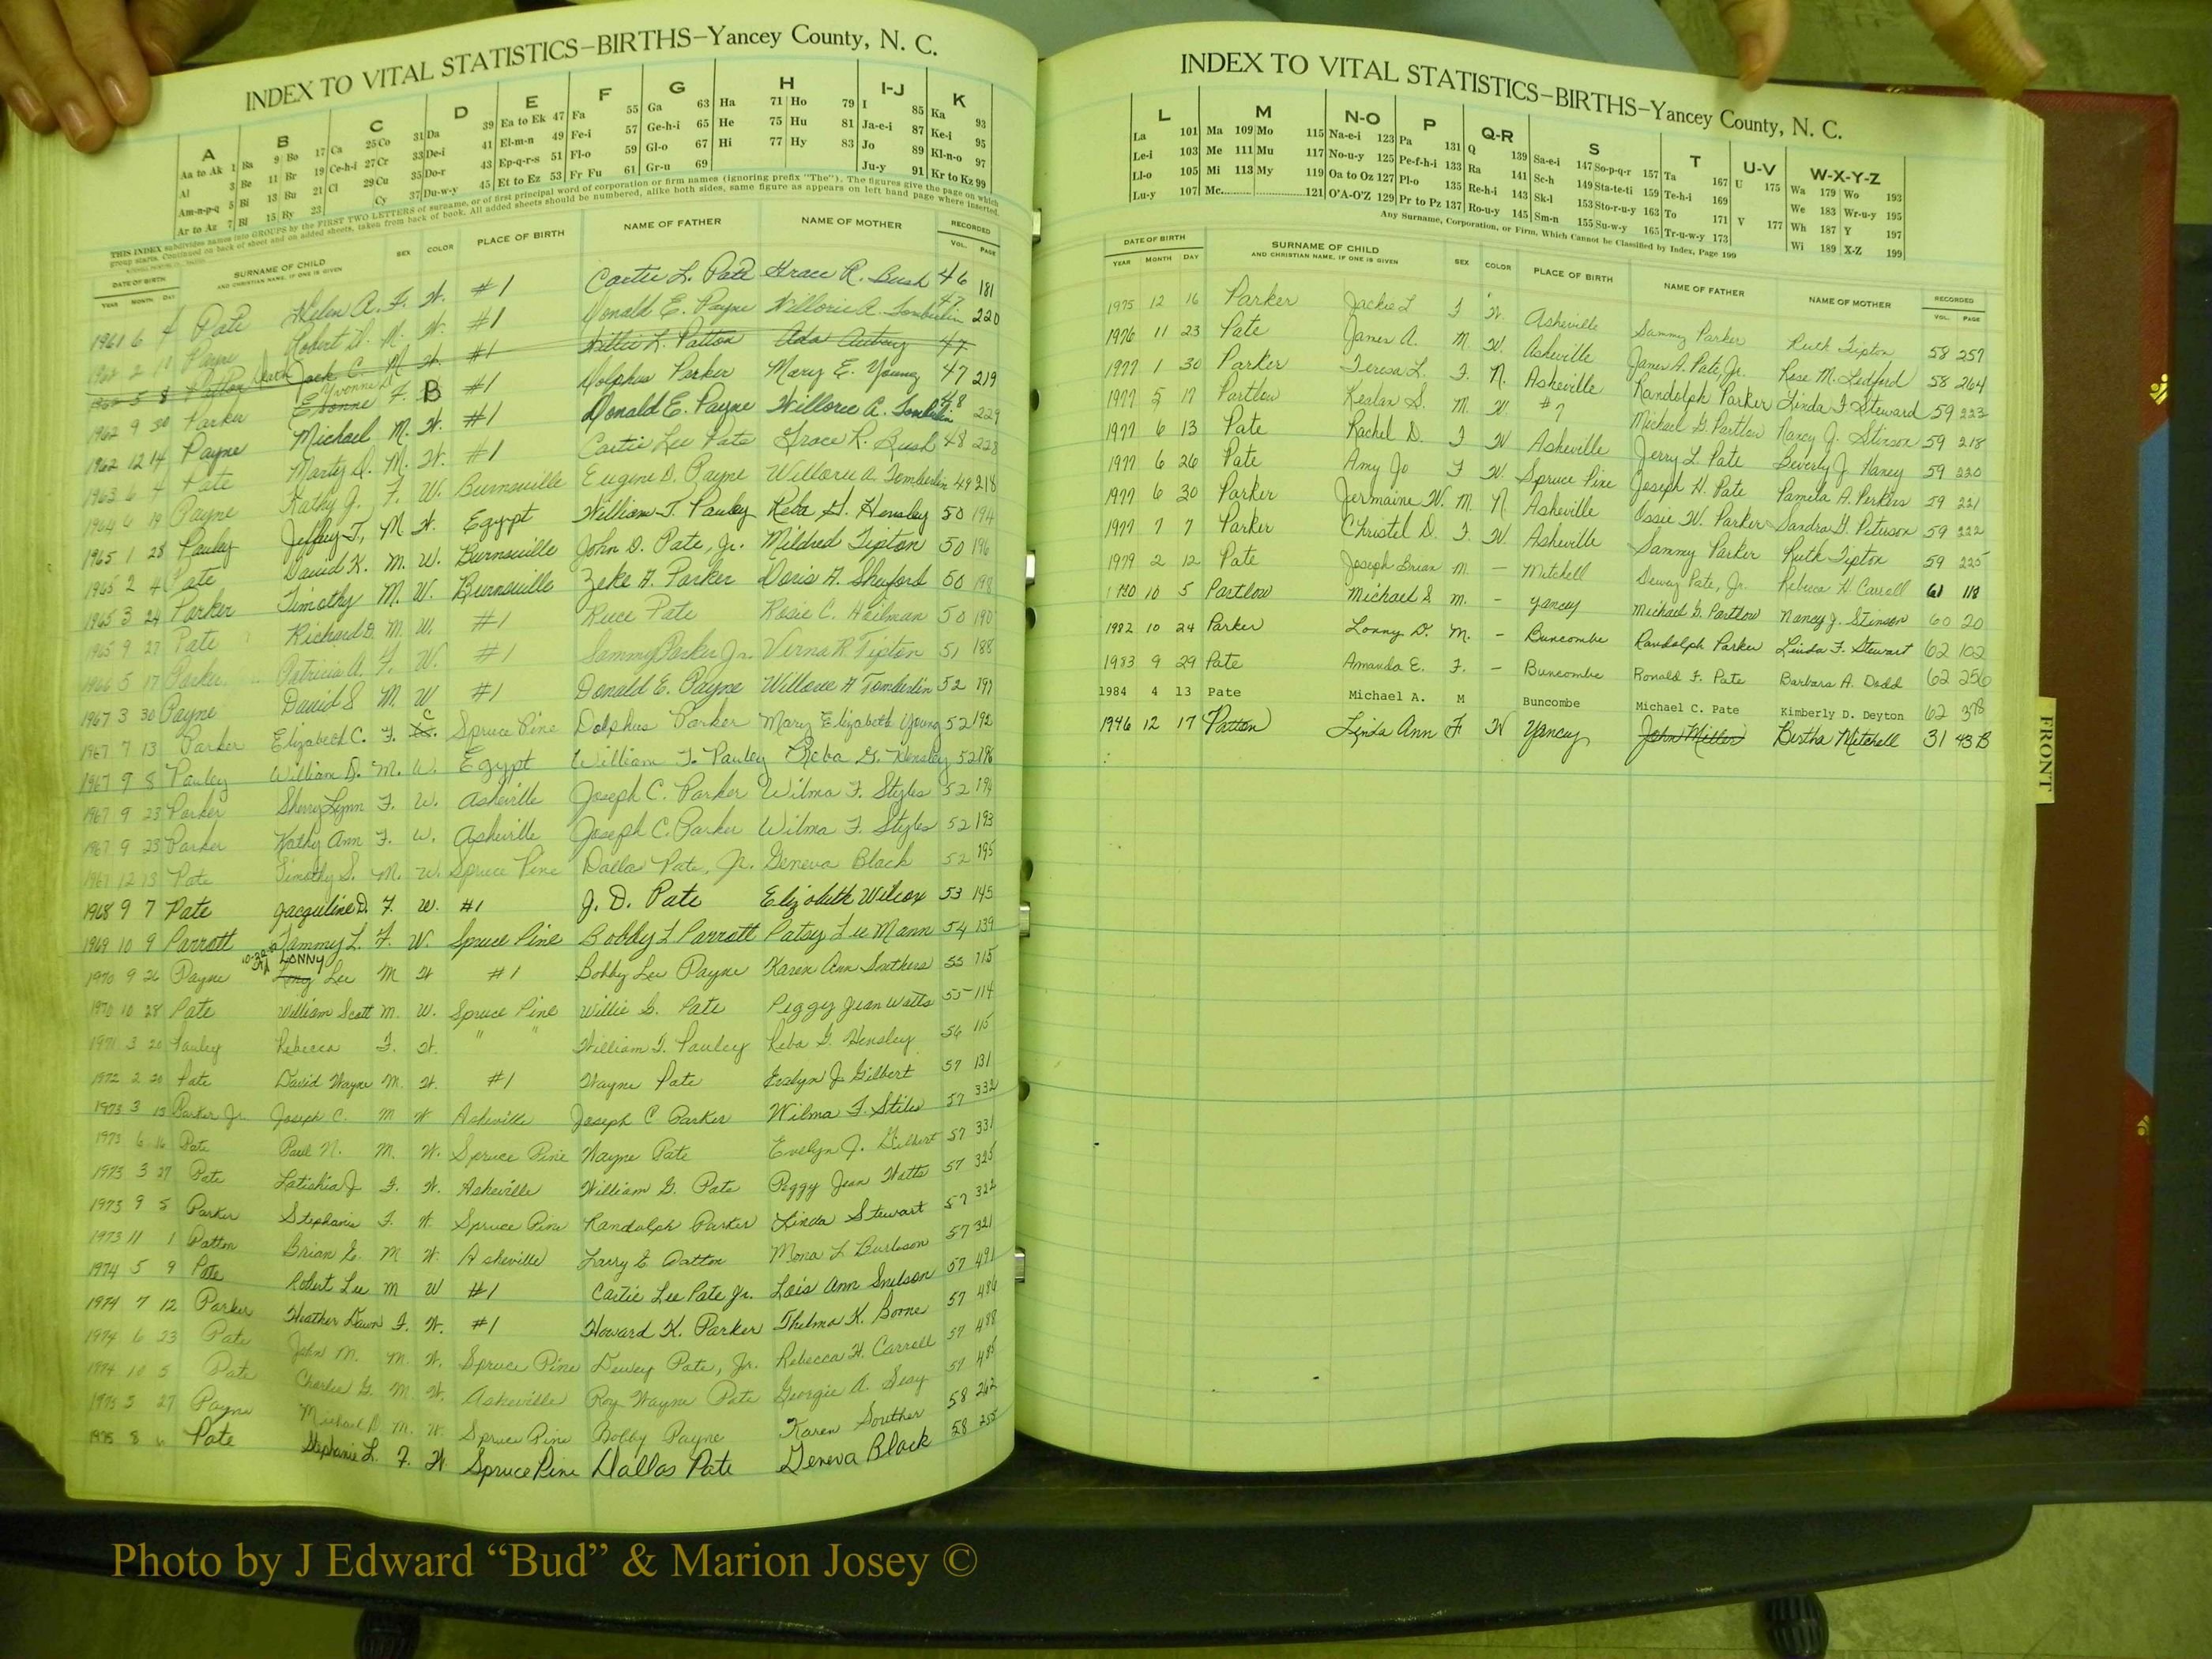 INDEX TO VITAL STATISTICS—BIRTHS—Yancey County, N. C.
A B C D E F G H I-J K
Aa to Ak 1 Ba 9 Bo 17 Ca 25 Co 31 Da 39 Ea to Ek 47 Fa 55 Ga 63 Ha 71 Ho 79 I 85 Ka 93
Al 3 Be 11 Br 19 Ce-h-i 27 Cr 33 De-i 41 El-m-n 49 Fe-i 57 Ge-h-i 65 He 75 Hu 81 Ja-e-i 87 Ke-i 95
Am-n-p-q 5 Bi 13 Bu 21 Cl 29 Cu 35 Do-r 43 Ep-q-r-s 51 Fl-o 59 Gl-o 67 Hi 77 Hy 83 Jo 89 Kl-n-o 97
Ar to Az 7 Bl 15 By 23 Cy 37 Du-w-y 45 Et to Ez 53 Fr Fu 61 Gr-u 69 Ju-y 91 Kr to Kz 99
THIS INDEX subdivides names into GROUPS by the FIRST TWO LETTERS of surname, or of first principal word of corporation or firm names (ignoring prefix "The"). The figures give the page on which
group starts. Continued on back of sheet and on added sheets, taken from back of book. All added sheets should be numbered, alike both sides, same figure as appears on left hand page where inserted.
DATE OF BIRTH SURNAME OF CHILD SEX COLOR PLACE OF BIRTH NAME OF FATHER NAME OF MOTHER RECORDED
YEAR MONTH DAY AND CHRISTIAN NAME, IF ONE IS GIVEN VOL. PAGE
1961 6 4 Pate Helen A. F. W. #1 Cartie L. Pate Grace R. Bush 46 181
2 10 Payne Robert D. M. W. #1 Donald E. Payne Willorie A. Tomberlin 47 220
5 8 Patton Death Jack C. M W. #1 Willie L. Patton Ada Autrey 47
1962 9 30 Parker Ebonne Yvonne D. F. B #1 Dolphus Parker Mary E. Young 47 219
1962 12 14 Payne Michael M. W. #1 Donald E. Payne Willorie A. Tomberlin 48 229
1963 6 4 Pate Marty D. M. W. #1 Cartie Lee Pate Grace R. Bush 48 228
1964 6 19 Payne Kathy J. F. W. Burnsville Eugene D. Payne Willorie A. Tomberlin 49 218
1965 1 28 Pauley Jeffrey T. M W. Egypt William T. Pauley Reba G. Hensley 50 194
1965 2 4 Pate David K. M. W. Burnsville John D. Pate, Jr. Mildred Tipton 50 196
1965 3 24 Parker Timothy M. W. Burnsville Zeke A. Parker Doris A. Shuford 50 198
1965 9 27 Pate Richard D. M. W. #1 Reece Pate Rosie C. Heilman 50 190
1966 5 17 Parker Patricia A. F. W. #1 Sammy Parker Jr. Verna R. Tipton 51 188
1967 3 30 Payne David S M. W #1 Donald E. Payne Willorie A Tomberlin 52 197
1967 7 13 Parker Elizabeth C. F. C Spruce Pine Dolphus Parker Mary Elizabeth Young 52 192
1967 9 8 Pauley William D. M. W. Egypt William T. Pauley Reba G. Hensley 52 196
1967 9 23 Parker Sherry Lynn F. W. Asheville Joseph C. Parker Wilma F. Styles 52 194
1967 9 23 Parker Kathy Ann F. W. Asheville Joseph C. Parker Wilma F. Styles 52 193
1967 12 13 Pate Timothy S. M. W. Spruce Pine Dallas Pate, Jr. Geneva Black 52 195
1968 9 7 Pate Jacquline D. F. W. #1 J. D. Pate Elizabeth Wilcox 53 145
1969 10 9 Parrott Tammy L. F. W. Spruce Pine Bobby L Parrott Patsy Lee Mann 54 139
1970 9 26 Payne LONNY Lee M W #1 Bobby Lee Payne Karen Ann Southers 55 115
1970 10 28 Pate William Scott M. W. Spruce Pine Willie G. Pate Peggy Jean Watts 55 114
1971 3 20 Pauley Rebecca F. W. " " William T. Pauley Reba G. Hensley 56 115
1972 2 20 Pate David Wayne M. W. #1 Wayne Pate Evelyn J. Gilbert 57 131
1973 3 13 Parker Jr. Joseph C. M W Asheville Joseph C Parker Wilma F. Stiles 57 332
1973 6 16 Pate Paul N. M. W. Spruce Pine Wayne Pate Evelyn J. Gilbert 57 331
1973 3 27 Pate Latishia J F. W. Asheville William G. Pate Peggy Jean Watts 57 325
1973 9 5 Parker Stephanie F. W. Spruce Pine Randolph Parker Linda Stewart 57 322
1973 11 1 Patton Brian E. M W. Asheville Larry E Patton Mona L Burleson 57 321
1974 5 9 Pate Robert Lee M W #1 Cartie Lee Pate Jr. Lois Ann Snelson 57 491
1974 7 12 Parker Heather Dawn F. W. #1 Howard K. Parker Thelma K. Boone 57 486
1974 6 23 Pate John M. M. W. Spruce Pine Dewey Pate, Jr. Rebecca H. Carroll 57 488
1974 10 5 Pate Charles G. M W. Asheville Roy Wayne Pate Georgie A. Seay 57 485
1975 5 27 Payne Michael D. M. W. Spruce Pine Bobby Payne Karen Souther 58 262
1975 8 6 Pate Stephanie L. F. W Spruce Pine Dallas Pate Geneva Black 58 255
INDEX TO VITAL STATISTICS—BIRTHS—Yancey County, N. C.
L M N-O P Q-R S T U-V W-X-Y-Z
La 101 Ma 109 Mo 115 Na-e-i 123 Pa 131 Q 139 Sa-e-i 147 So-p-q-r 157 Ta 167 U 175 Wa 179 Wo 193
Le-i 103 Me 111 Mu 117 No-u-y 125 Pe-f-h-i 133 Ra 141 Sc-h 149 Sta-te-ti 159 Te-h-i 169 We 183 Wr-u-y 195
Ll-o 105 Mi 113 My 119 Oa to Oz 127 Pl-o 135 Re-h-i 143 Sk-l 153 Sto-r-u-y 163 To 171 V 177 Wh 187 Y 197
Lu-y 107 Mc 121 O'A-O'Z 129 Pr to Pz 137 Ro-u-y 145 Sm-n 155 Su-w-y 165 Tr-u-w-y 173 Wi 189 X-Z 199
Any Surname, Corporation, or Firm, Which Cannot be Classified by Index, Page 199
DATE OF BIRTH SURNAME OF CHILD SEX COLOR PLACE OF BIRTH NAME OF FATHER NAME OF MOTHER RECORDED
YEAR MONTH DAY AND CHRISTIAN NAME, IF ONE IS GIVEN VOL. PAGE
1975 12 16 Parker Jackie L F W. Asheville Sammy Parker Ruth Tipton 58 257
1976 11 23 Pate James A. M W. Asheville James A. Pate, Jr. Rose M. Ledford 58 264
1977 1 30 Parker Teresa L. F. N. Asheville Randolph Parker Linda F. Steward 59 223
1977 5 17 Partlow Kealan S. M. W. #7 Michael G. Partlow Nancy J. Stinson 59 218
1977 6 13 Pate Rachel D. F W Asheville Jerry L. Pate Beverly J. Haney 59 220
1977 6 26 Pate Amy Jo F W. Spruce Pine Joseph H. Pate Pamela A. Perkins 59 221
1977 6 30 Parker Jermaine W. M. N. Asheville Ossie W. Parker Sandra G. Peterson 59 222
1977 7 7 Parker Christel D. F. W Asheville Sammy Parker Ruth Tipton 59 225
1979 2 12 Pate Joseph Brian M. — Mitchell Dewey Pate, Jr. Rebecca H. Carroll 61 118
1980 10 5 Partlow Michael S M. - Yancey Michael G. Partlow Nancy J. Stinson 60 20
1982 10 24 Parker Lonny D. M. - Buncombe Randolph Parker Linda F. Stewart 62 102
1983 9 29 Pate Amanda E. F. - Buncombe Ronald F. Pate Barbara A. Dodd 62 256
1984 4 13 Pate Michael A. M Buncombe Michael C. Pate Kimberly D. Deyton 62 378
1946 12 17 Patton Linda Ann F W Yancey John Miller Bertha Mitchell 31 43B
FRONT
Photo by J Edward “Bud” & Marion Josey ©